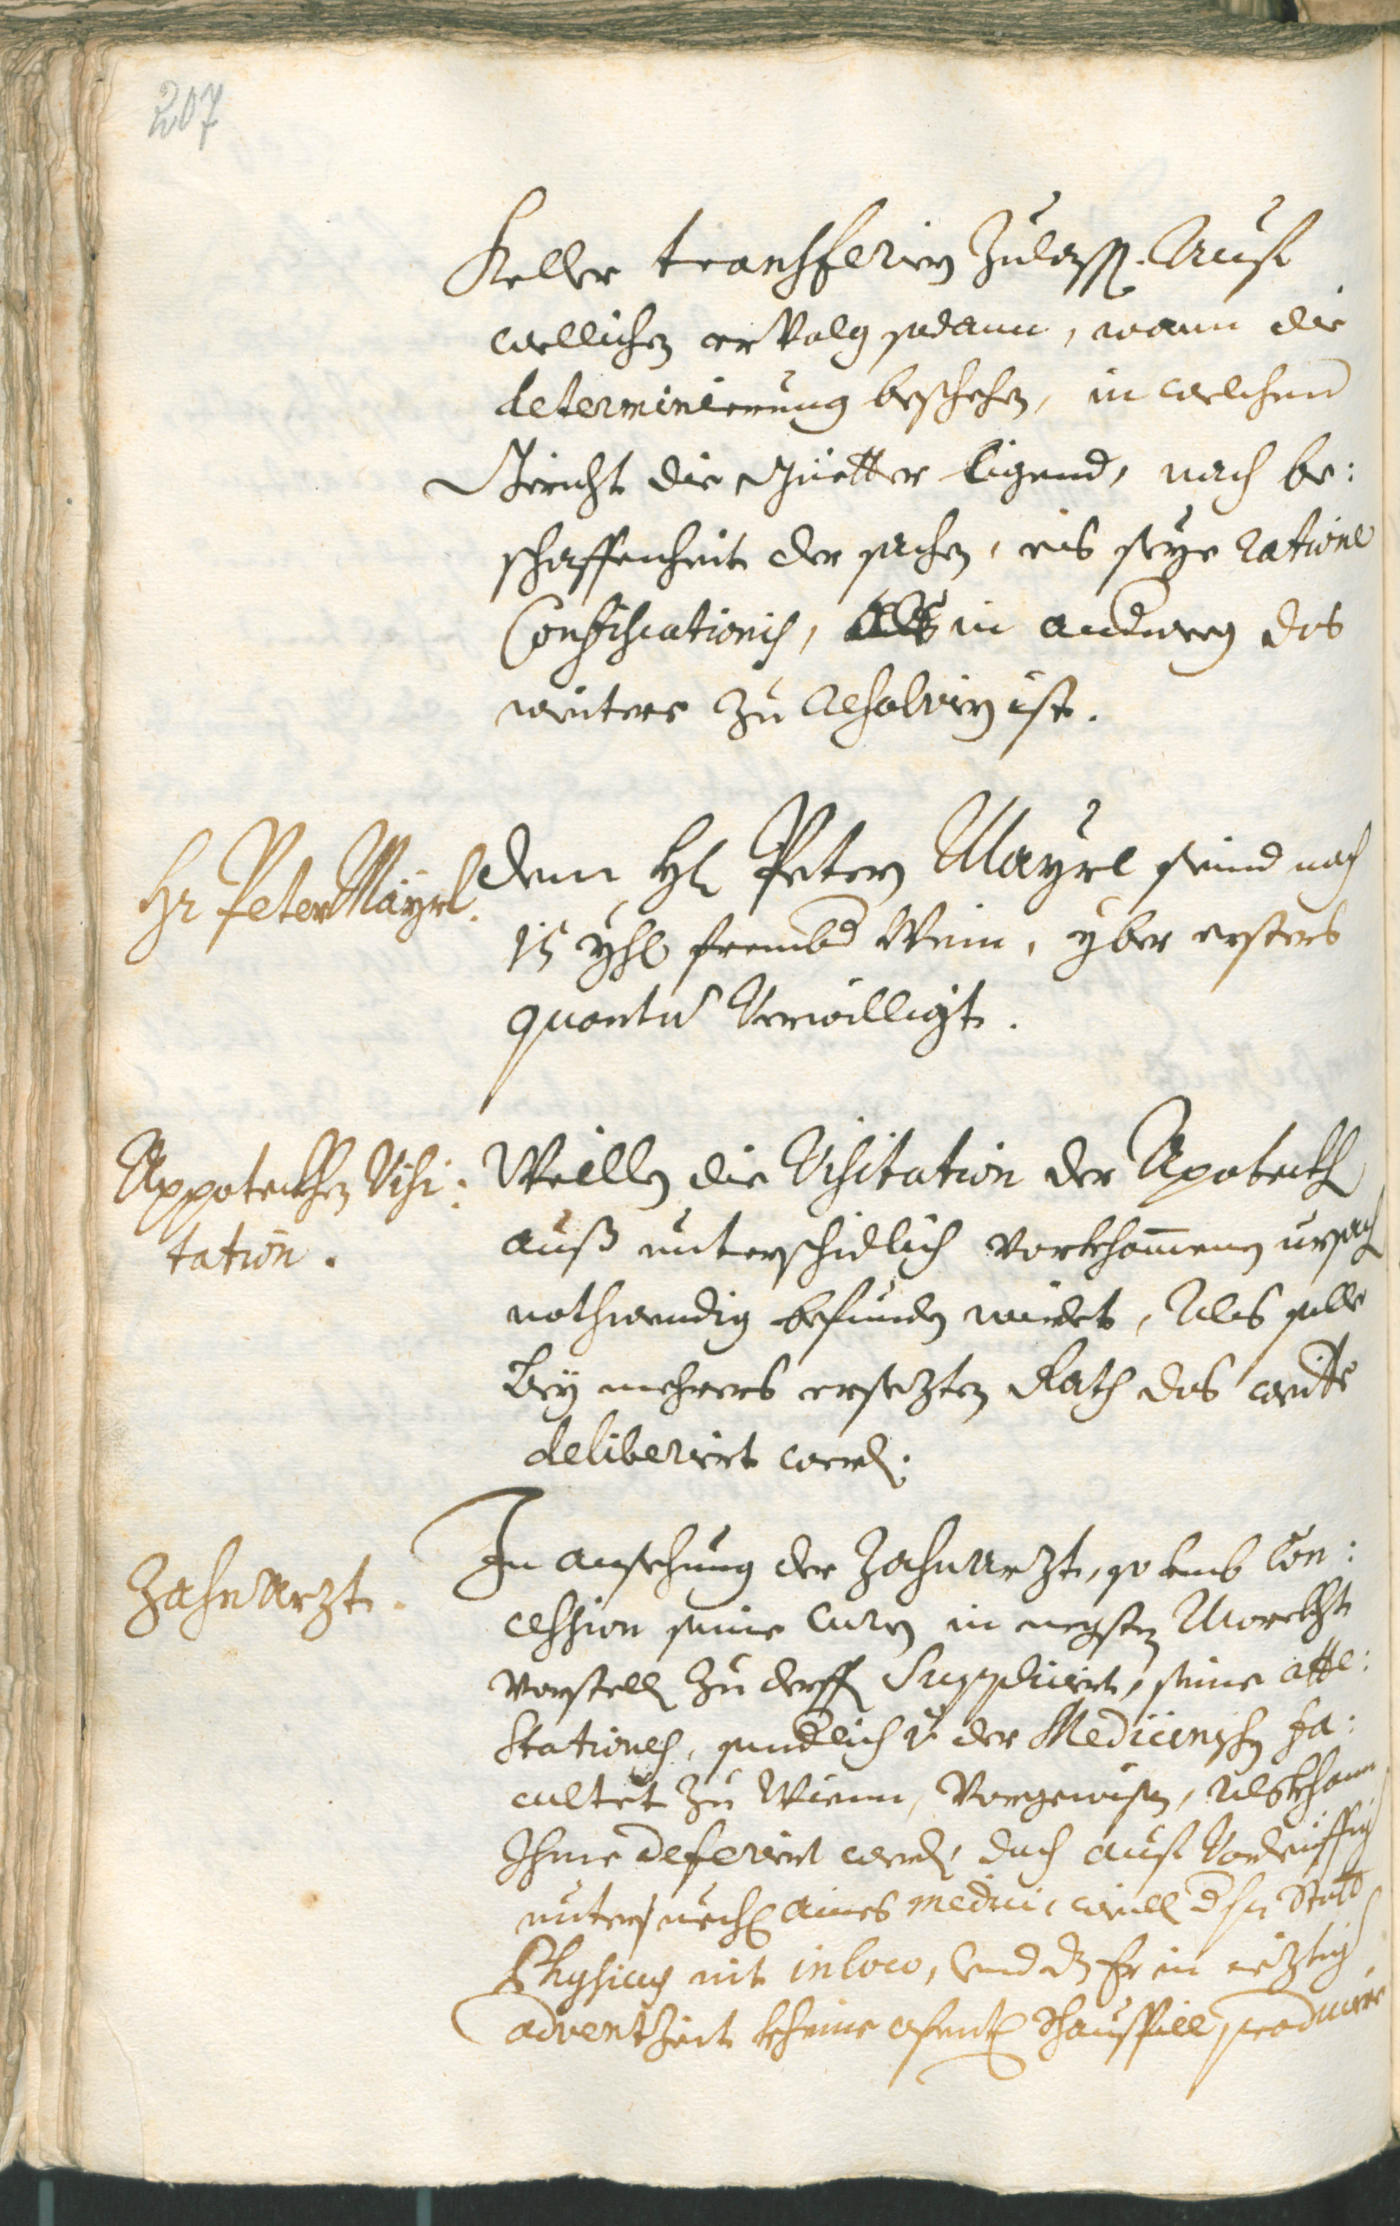 207
Keller transferiern zulassen. Auf
wellichen ervolg sodann, wann die
determinierung beschehen, in welchem
Gericht die Güetter ligend, nach be:
schaffenheit der sachen, eis seye ratione
Confiscationis, in andweg das
weitere zu resolviern ist.
Hr Peter Mayrl.
Dem Hr Petern Mayrl seind noch
15 yhrn frembd Wein, yber ersters
quantum Verwilligt.
Appoteckhen Visi:
tation.
Weillen die Visitation der Apoteckh
auß unterschidlich vorkhommenen ursach
nothwendig befunden wirdet, Als solle
bey mehrers ersezten Rath das weitte
deliberiert werden.
Zahnarzt.
In ansehung der Zahnarzt, so umb Con:
cession seine Curen in negsten Marckht
vorstellen zu derffen Suppliciert, seine atte:
stationes, sonderlich von der Medicinischen fa:
cultet zu Wienn, Vorgewisen, Als khann
Ihme deferiert werden, doch auf Vorleiffig
untersuechen aines medici, weill der Statt
Physicus nit in loco, Und das Er in iezig
advent Zeit kheine ofentl. schauspill producire